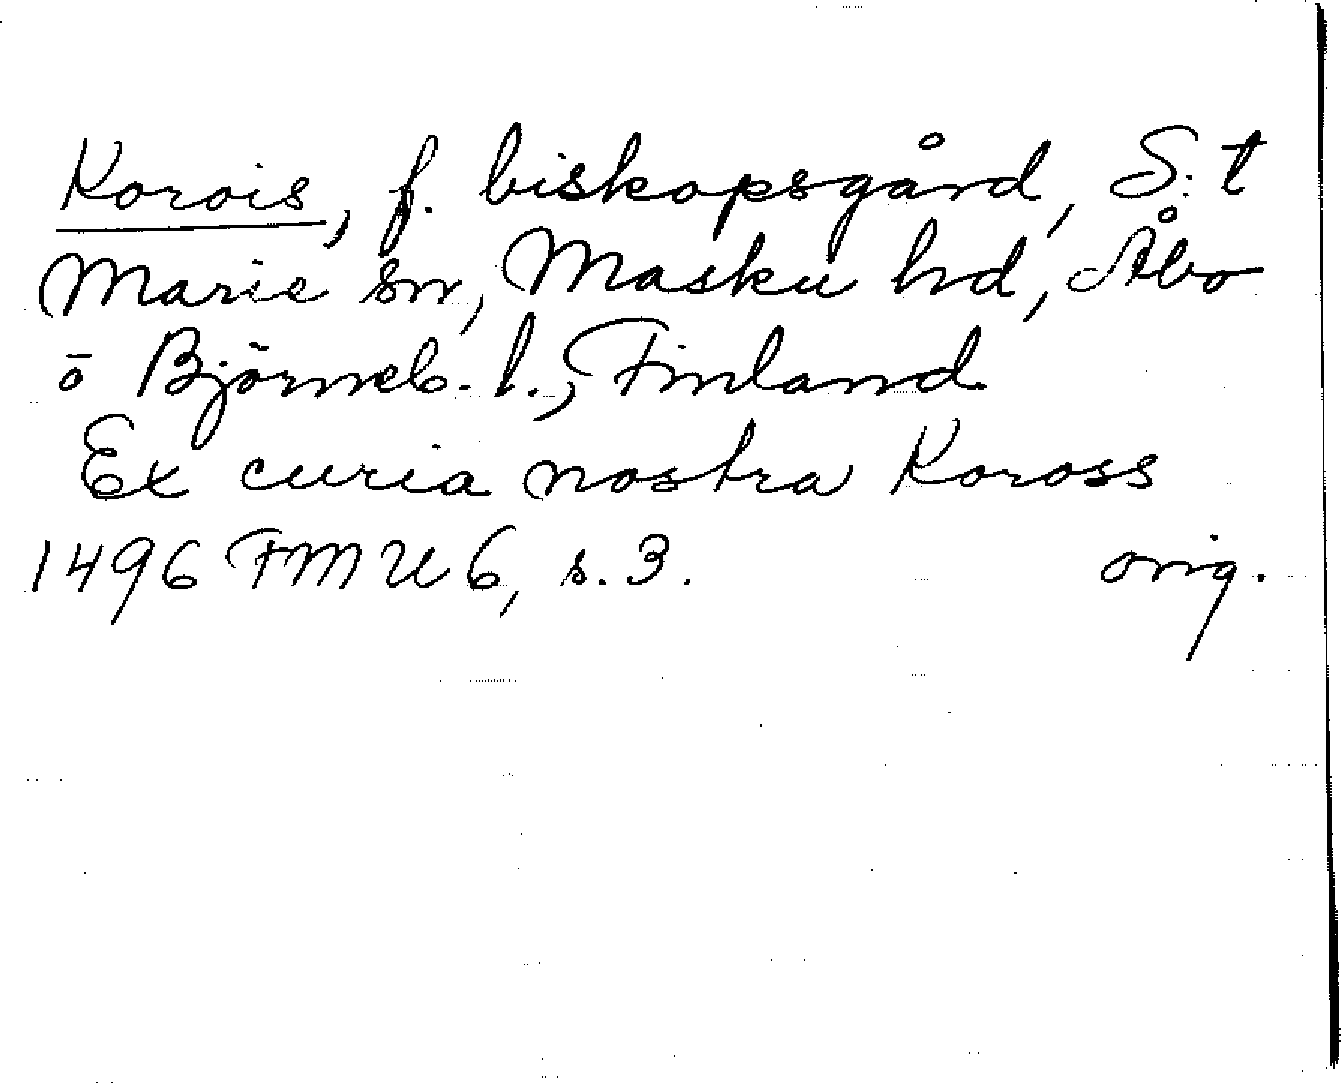 Korois, f. biskopsgård, S:t
Marie sn, Masku hd, Åbo
o Björneb. l., Finland
Ex curia nostra Koross
1496 FMU 6, s. 3. orig.